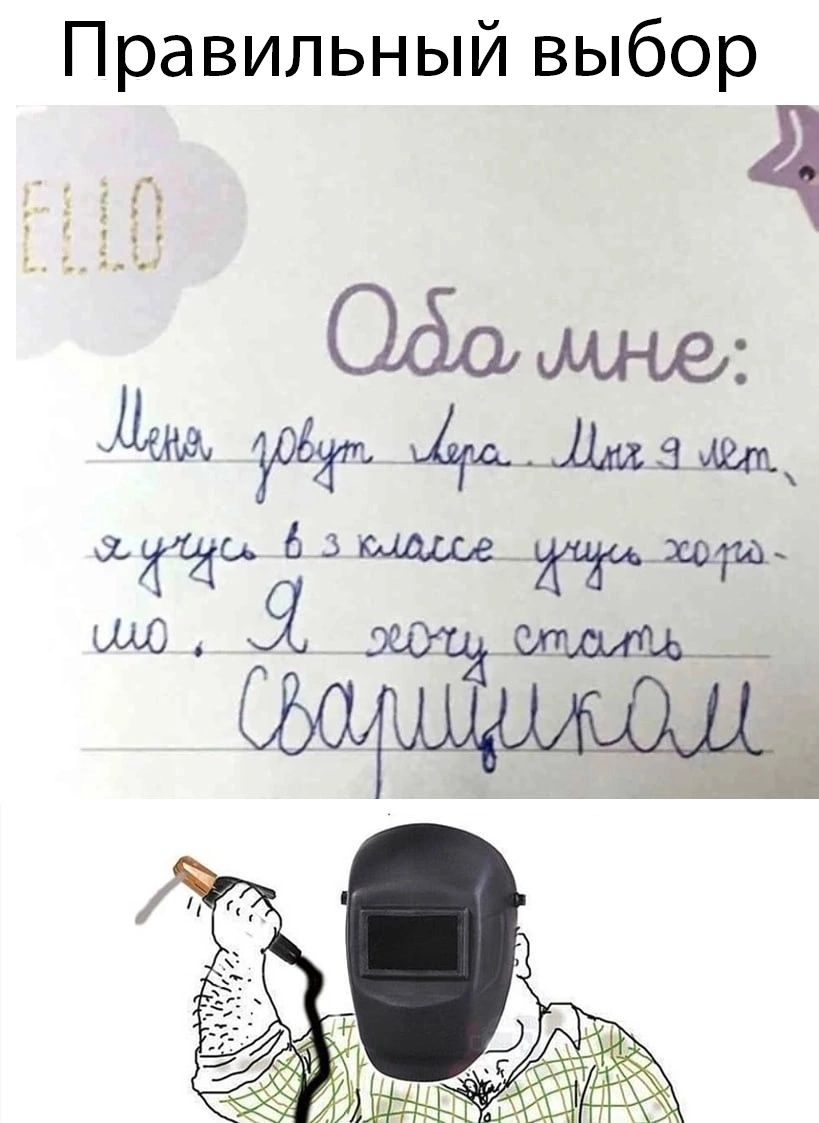 Правильный выбор
ELLO
Обо мне:
Меня зовут Лера. Мне 9 лет,
я учусь в 3 классе учусь хоро-
шо. Я хочу стать
Сварщиком